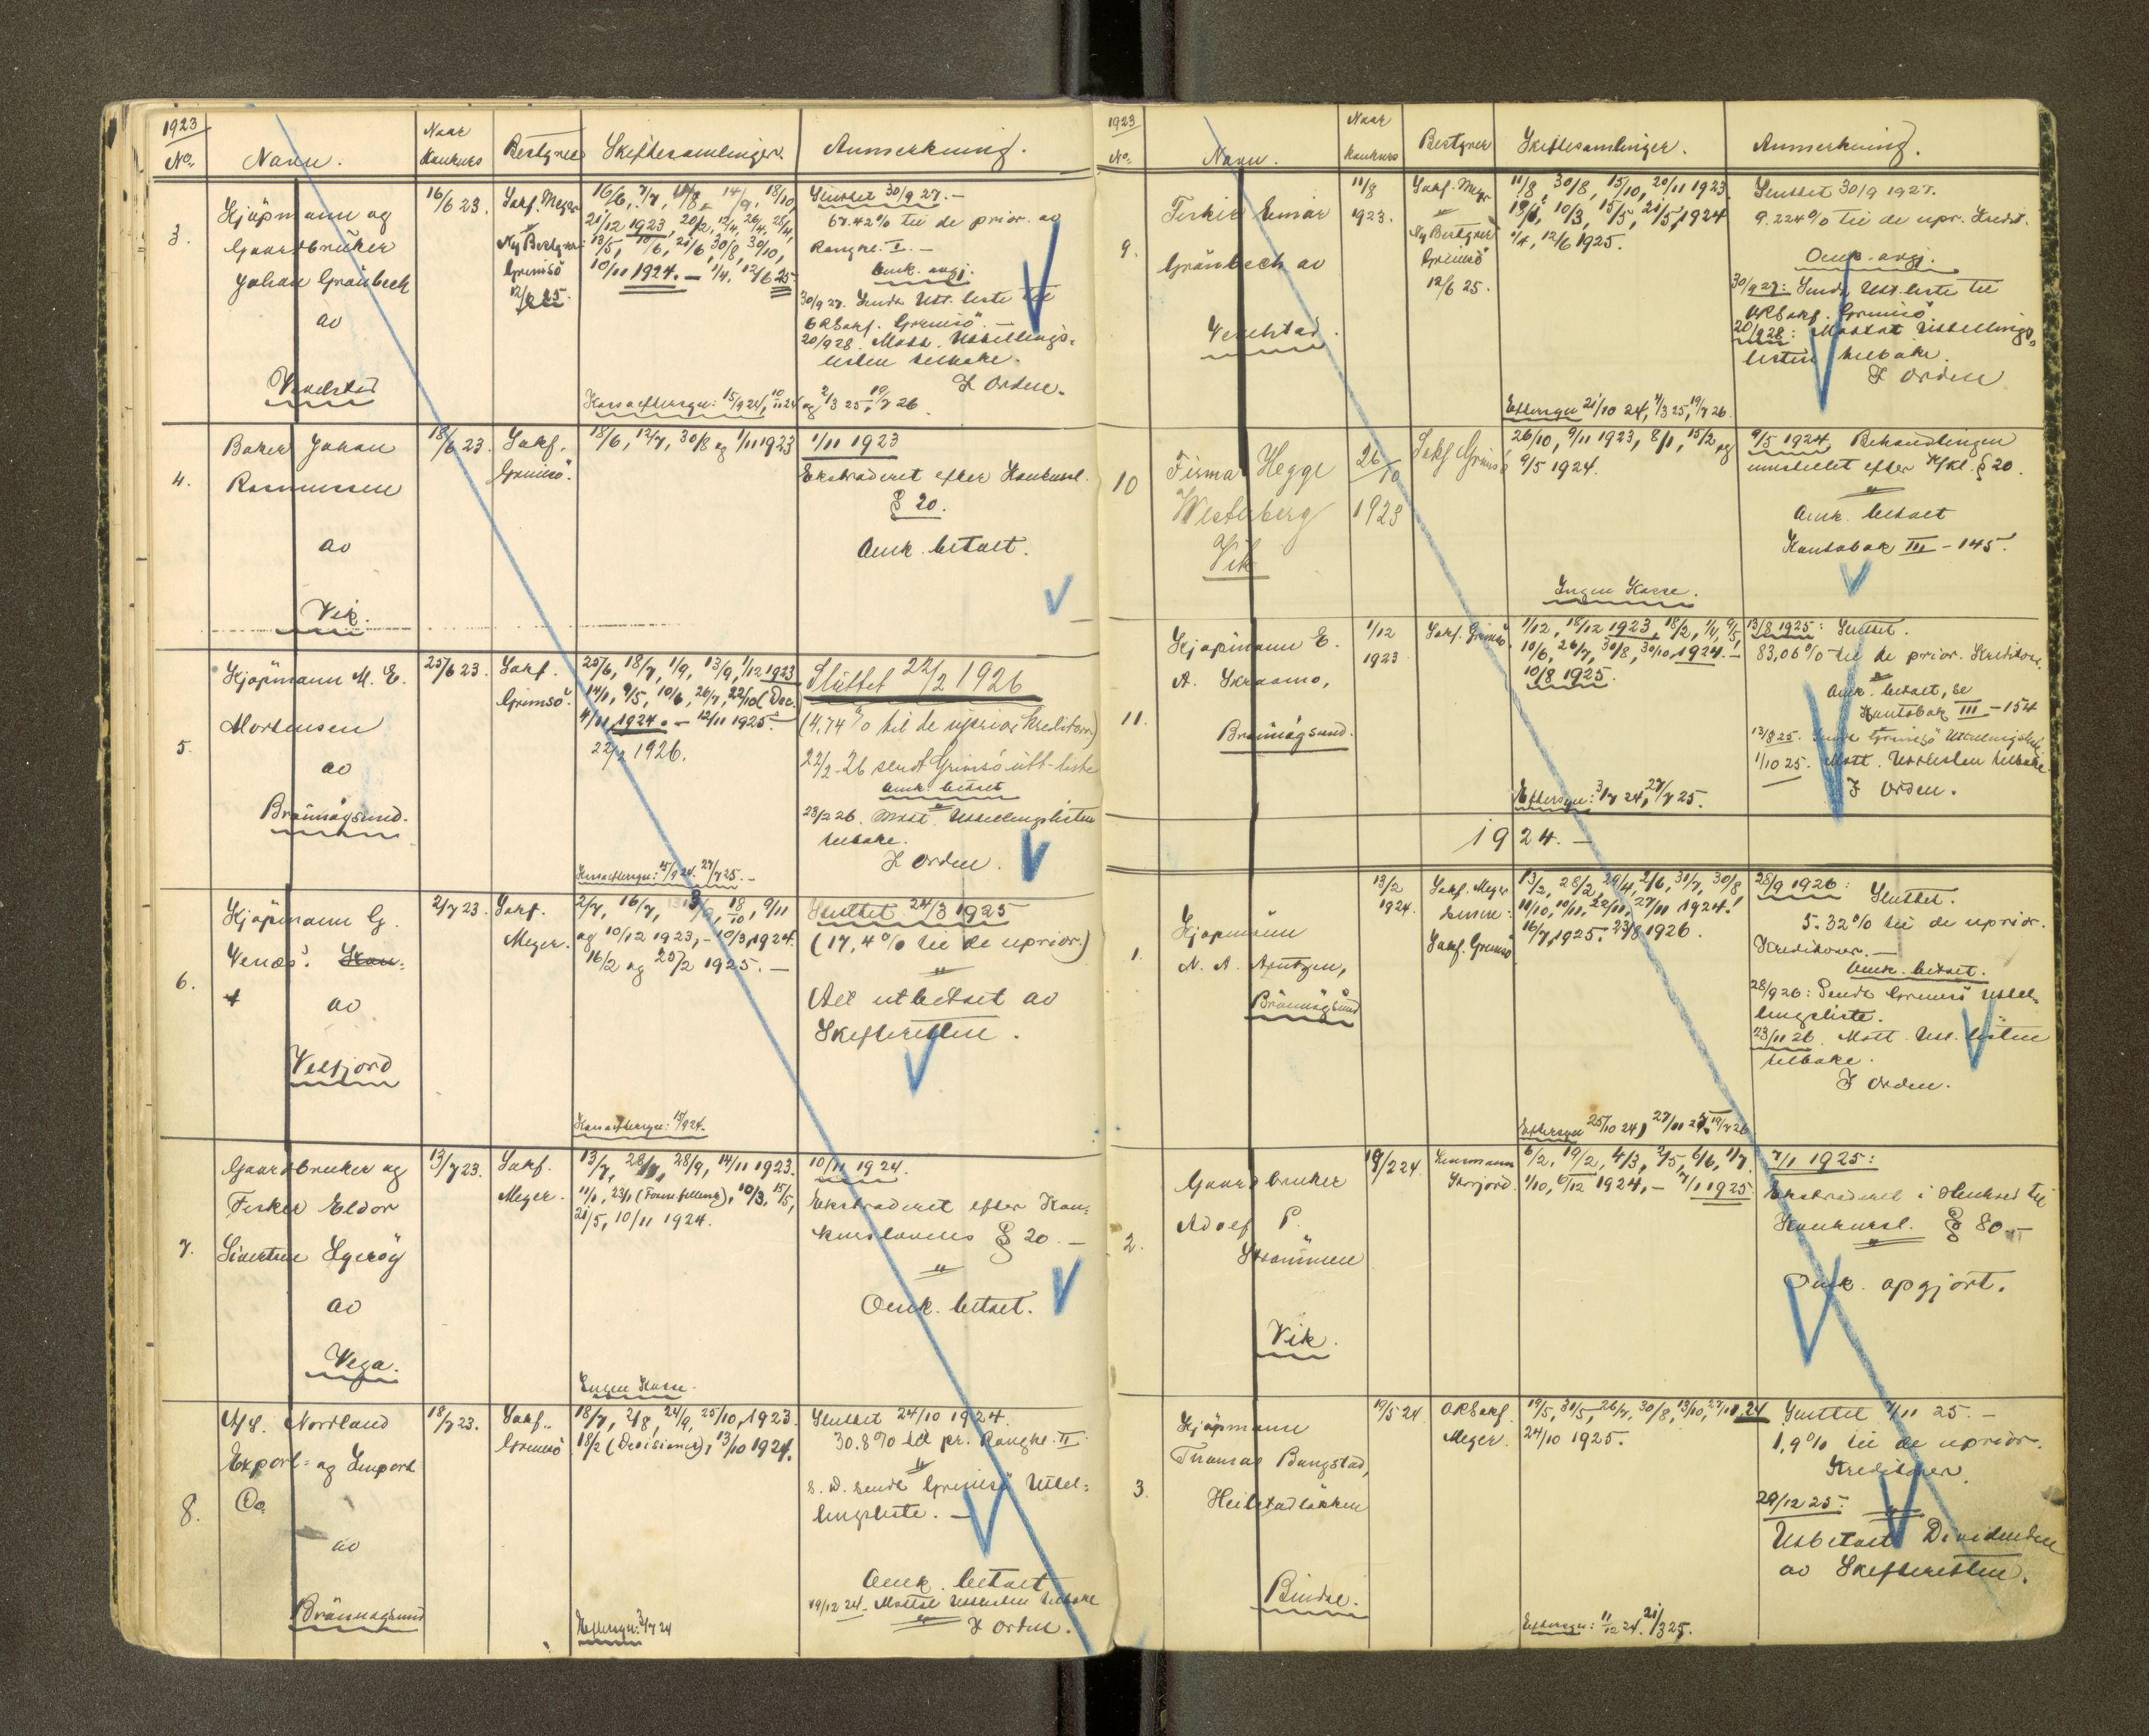 1923
No. Navn. Naar Konkurs Bestyrer Skiftesamlinger. Anmerkning.
3.
Kjøpmann og
Gaardbruker
Johan Grønbech
av
16/6 23.
Sakf. Meyer
Ny Bestyrer:
Grimsø
16/6, 7/7,
21/12 1923, 20/2,
10/11 1924. – 1/4, 12/6 25
Kasseeftersyn: 15/9 24,
Sluttet 30/9 27. –
67.42% til de prior. av
Rangkl. I. –
Omk. avgj.
30/9 27. Sendt Utl. liste til
ORSakf. Grimsø. –
20/9 28. Mott. Utdelings-
listen tilbake.
I Orden.
4.
Baker Johan
Rasmussen
av
Vik.
18/6 23.
Sakf.
Grimsø.
18/6, 12/7, 30/8 og 1/11 1923
1/11 1923
Ekstraderet efter Konkursl.
§ 20.
Omk. betalt.
5.
Kjøpmann M. E.
Mortensen
av
Brønnøysund.
25/6 23.
Sakf.
Grimsø.
25/6, 18/7, 1/9, 13/9, 1/12 1923
14/1, 9/5, 10/6, 26/7, 22/10 (Dec.
4/11 1924. – 12/11 1925.
22/2 1926.
Sluttet 22/2 1926
(4,74% til de uprior. Kreditorer)
22/2-26 sendt Grimsø utl-liste
Omk. betalt
23/2 26. Mott. Utdelingslisten
tilbake.
I Orden.
6.
Kjøpmann G.
av
Velfjord
2/7 23.
Sakf.
Meyer.
2/7, 16/7,
og 10/12 1923, – 10/3, 1924.
16/2 og 25/2 1925. –
Kasseeftersyn: 15/9 24.
Sluttet 24/3 1925
(17,4% til de uprior.)
Alt utbetalt av
Skifteretten.
7.
Gaardbruker og
Fisker Eldor
Sivertsen
av
Vega.
13/7 23.
Sakf.
Meyer.
13/7, 28/9, 14/11 1923.
21/5, 10/11 1924.
Ingen Kasse.
10/11 1924.
Ekstraderet efter Kon-
kurslovens § 20. –
Omk. betalt.
8.
A/S. Nordland
Export- og Import
Co.
av
Brønnøysund
18/7 23.
Sakf.
Grimsø
18/7, 2/8, 24/9, 25/10, 1923.
18/2 (Decisioner), 13/10 1924.
Eftersyn: 3/7 24
Sluttet 24/10 1924.
30.8% til pr. Rangkl. II
s. D. sendt Grimsø Utdel-
lingsliste. –
Omk. betalt
19/12 24. Mottat Utdelslisten tilbake
I orden.
1923
No. Navn. Naar Konkurs Bestyrer Skiftesamlinger. Anmerkning.
9.
Fisker Einar
Grønbech av
11/8
1923.
Sakf. Meyer
Ny Bestyrer
Grimsø
12/6 25.
11/8, 30/8, 15/10, 20/11 1923
10/3, 15/5, 21/5, 1924
1/4, 12/6 1925.
Eftersyn 21/10 24,
Sluttet 30/9 1927.
9.224% til de upr. Kredit.
Omk. avgj.
30/9 27: Sendt Utl. liste til
ORSakf. Grimsø.
20/9 28: Mottat Utdelings-
listen tilbake.
I Orden
10
Firma Hegge
Westerberg
Vik
26/10
1923
Sakf Grimsø
26/10, 9/11 1923, 8/1, 15/2 og
9/5 1924.
Ingen Kasse.
9/5 1924. Behandlingen
innstillet efter K/kl. § 20.
Omk. betalt
Kontobok III – 145.
11.
Kjøpmann E.
A. Skraamo,
Brønnøysund.
1/12
1923
Sakf. Grimsø.
1/12, 18/12 1923, 18/2,
10/6, 26/7, 30/8, 30/10, 1924. –
10/8 1925.
Eftersyn: 3/7 24, 27/7 25.
13/8 1925: Sluttet.
83,06% til de prior. Kreditorer.
Omk. betalt, se
Kontobok III – 154
13/8 25. Sendt Grimsø Utdelingsliste
1/10 25. Mott. Utdlisten tilbake.
I orden.
1924. –
1.
Kjøpmann
N. A. Arntzen,
Brønnøysund
13/2
1924.
Sakf. Meyer
Sakf. Grimsø
13/2, 28/2, 29/4, 2/6, 31/7, 30/8
11/10, 10/11, 22/11, 27/11 1924.
16/7, 1925. 23/8 1926.
28/9 1926: Sluttet.
5.32% til de uprior.
Kreditorer. –
Omk. betalt.
28/9 26: Sendt Grimsø Utdel-
lingsliste.
23/11 26. Mott. Utl. listen
tilbake.
I Orden.
2.
Gaardbruker
Adolf P.
Strømmen
Vik.
19/2 24.
Lensmann
6/2, 19/2, 4/3, 2/5, 6/6, 1/7.
1/10, 6/12 1924, – 7/1 1925
7/1 1925:
Ekstraderet i Henhold til
Konkursl. § 80 –
Omk. opgjort.
3.
Kjøpmann
Thomas Bangstad,
Bindal.
19/5 24
ORSakf.
Meyer.
19/5, 31/5, 26/7, 30/8, 13/10, 27/11 24
24/10 1925.
Eftersyn: 11/12 24. 21/3 25.
Sluttet 4/11 25. –
1,9% til de uprior.
Kreditorer.
29/12 25:
Utbetalt Dividenden
av Skifteretten.